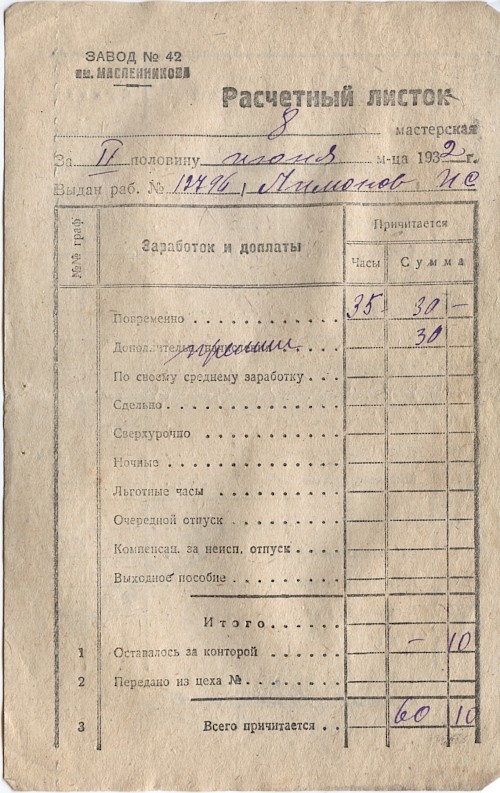 ЗАВОД № 42
им. МАСЛЕННИКОВА
Расчетный листок
8 мастерская
За II половину июня м-ца 1932 г.
Выдан раб. № 12796 Лимонов ИС
№№ граф
Заработок и доплаты
Причитается
Часы Сумма
Повременно 35 30 —
Дополнительно премии 30
По своему среднему заработку
Сдельно
Сверхурочно
Ночные
Льготные часы
Очередной отпуск
Компенсац. за неисп. отпуск
Выходное пособие
Итого
1 Оставалось за конторой — 10
2 Передано из цеха №
3 Всего причитается 60 10